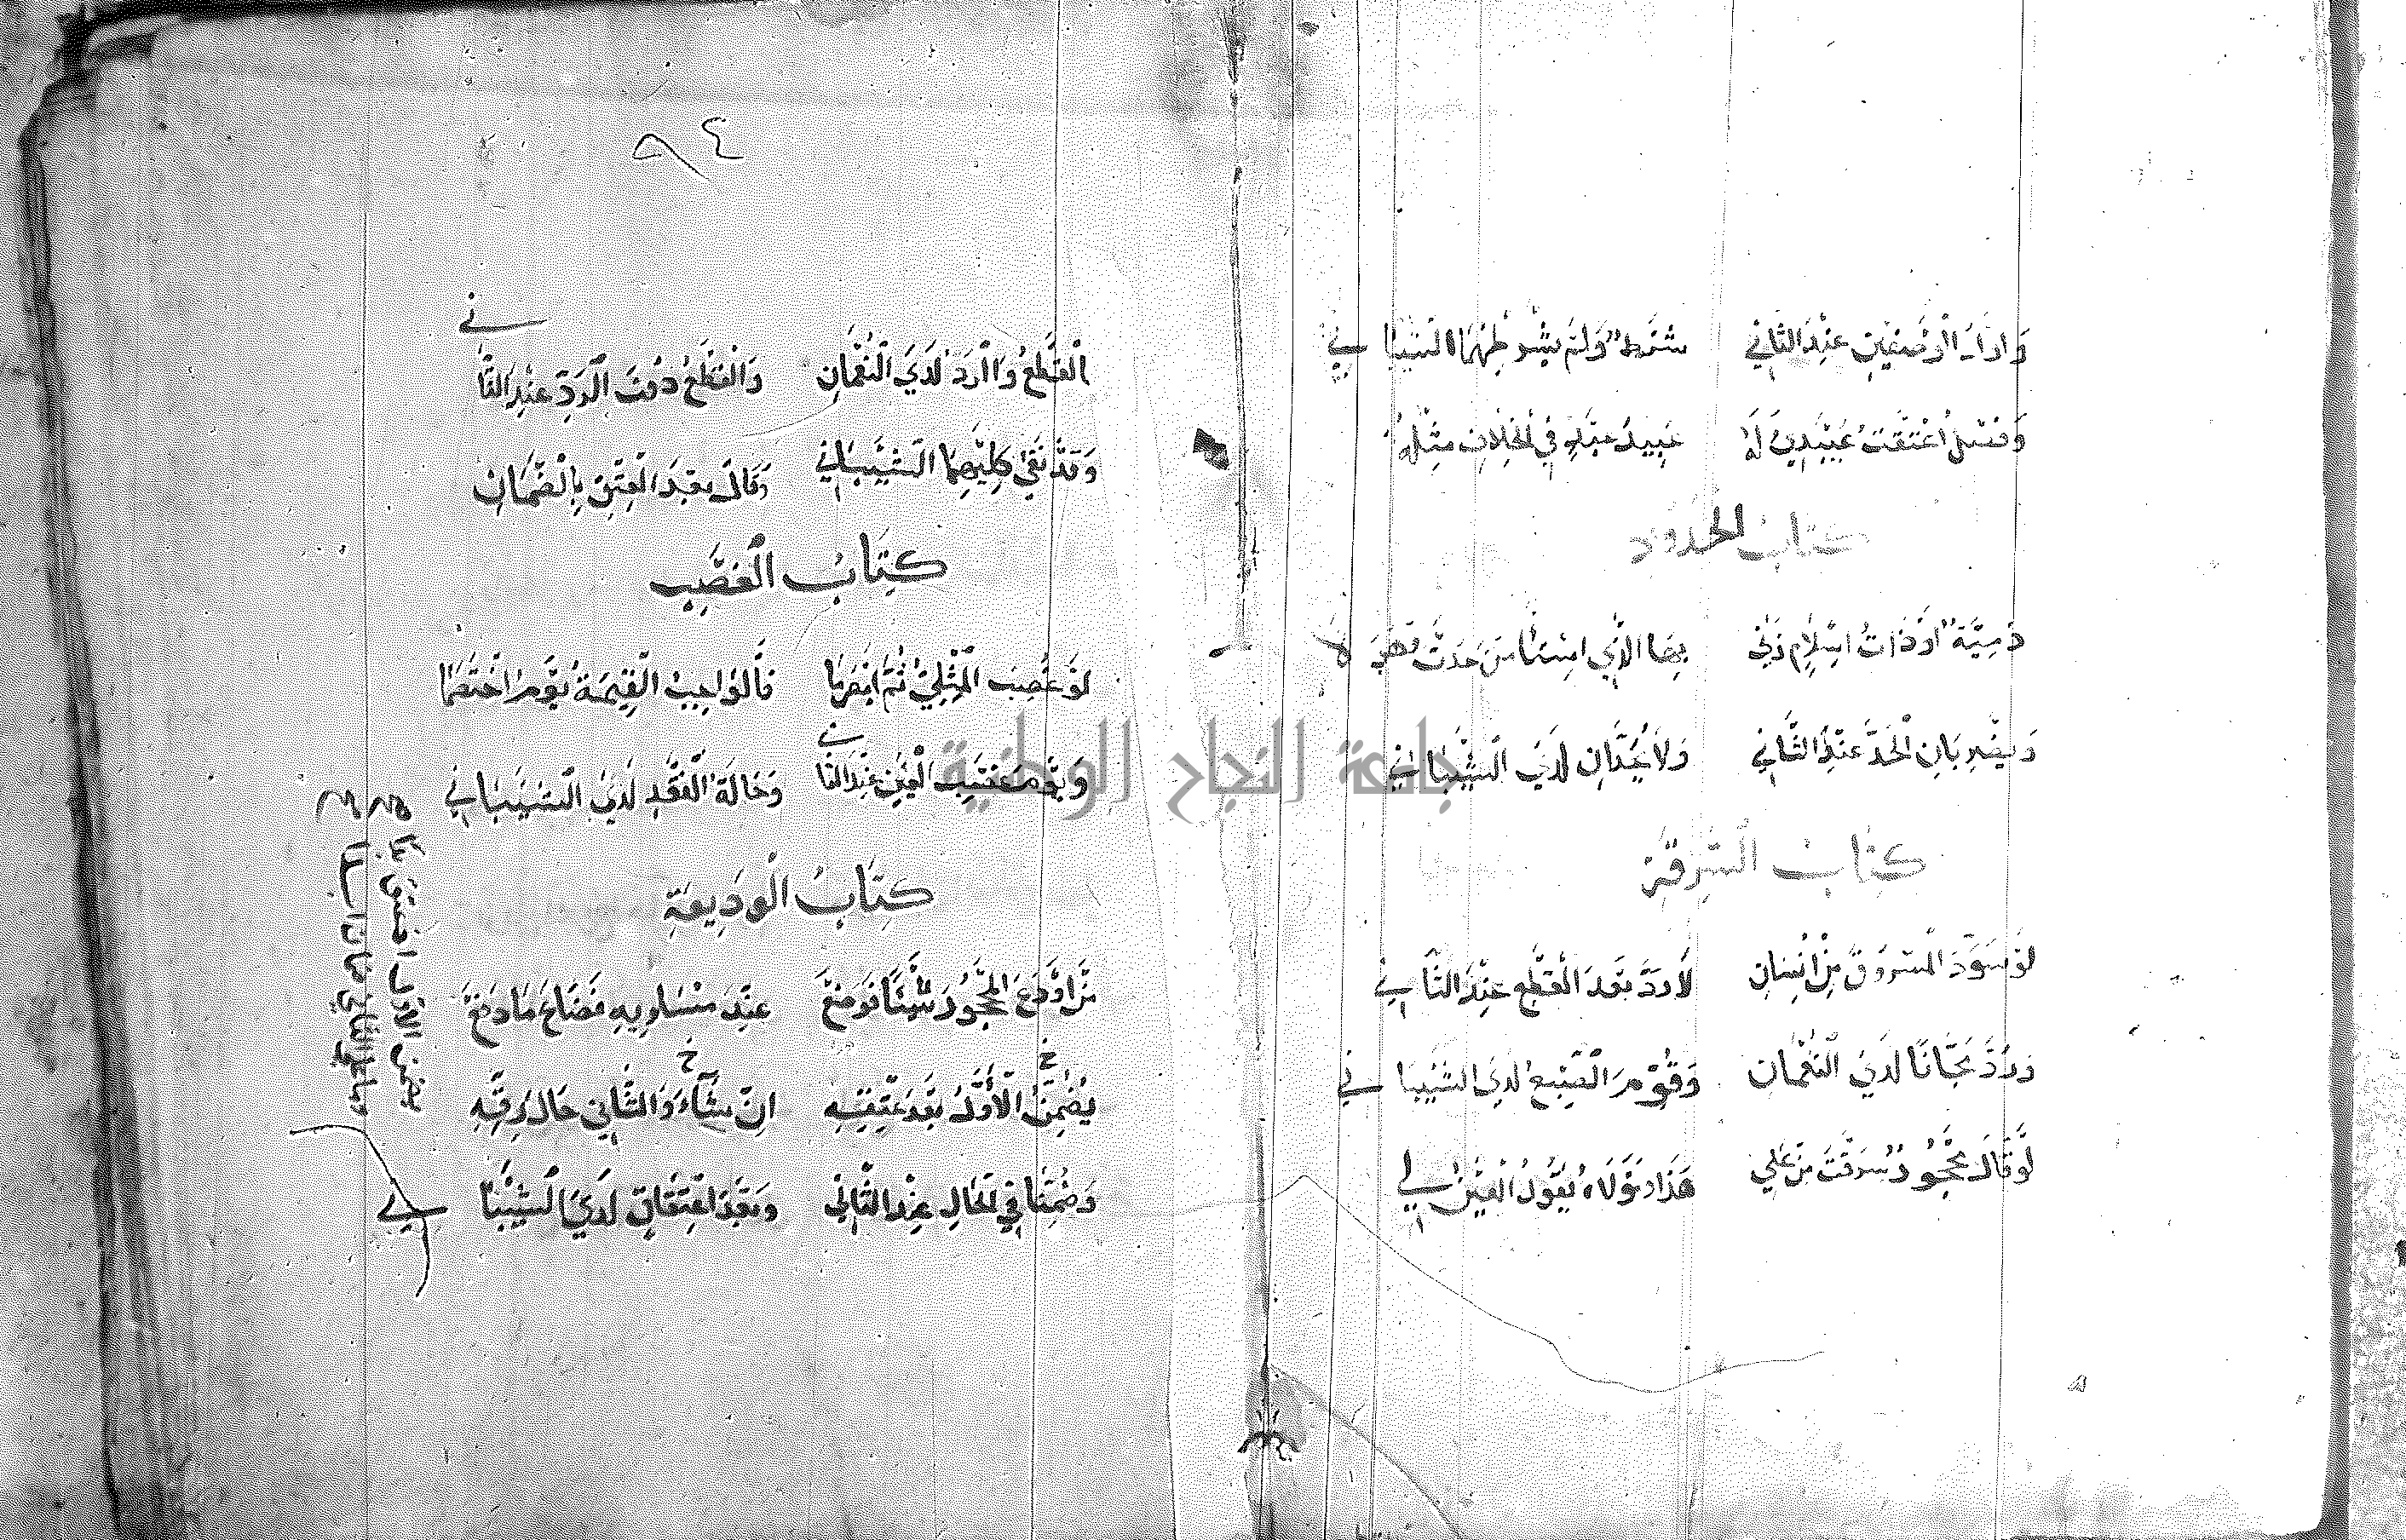 وَادَاءُ الْاَرْضَعَيْنِ عِنْدَ الثَّانِي شَرْطٌ وَلَمْ يَشْرُطْهُمَا الشَّيْبَانِي
اَعْتَقَتْ عَبْدَيْنِ لَهُ عَبِيدُ عَبْدِهِ فِي الْخِلَافِ مِثْلُهُ
كتاب الحدود
ذِمِّيَّةٌ اَوْ ذَاتُ اِسْلَامٍ زَنَى بِهَا الَّذِي حُدَّتْ لَا
وَيُضْرَبَانِ الْحَدَّ عِنْدَ الثَّانِي وَلَا يُحَدَّانِ لَدَى الشَّيْبَانِي
كتاب السرقة
لَوْ سَوَّدَ الْمَسْرُوقَ مِنْ اِنْسَانِ لَا رَدَّ بَعْدَ الْقَطْعِ عِنْدَ الثَّانِي
وَرَدَّ مَجَّانًا لَدَى النُّعْمَانِ وَقُوِّمَ الصَّبْغُ لَدَى الشَّيْبَانِي
لَوْ قَالَ مَحْجُورٌ سَرَقْتُ مِنْ عَلِي هَذَا وَمَوْلَاهُ يَقُولُ الْعَيْنُ لِي
٩٤
اَلْقَطْعُ وَالرَّدُّ لَدَى النُّعْمَانِ وَالْقَطْعُ دُونَ الرَّدِّ عِنْدَ الثَّانِي
وَقَدْ نَفَى كِلَيْهِمَا الشَّيْبَانِي وَقَالَ بَعْدَ الْعِتْقِ بِالضَّمَانِ
كِتَابُ الْغَصْبِ
لَوْ غُصِبَ الْمِثْلِيُّ ثُمَّ انْصَرَمَا فَالْوَاجِبُ الْقِيمَةُ يَوْمَ اخْتَصَمَا
وَيَوْمَ غَصْبِ الْعَيْنِ عِنْدَ الثَّانِي وَحَالَةَ الْفَقْدِ لَدَى الشَّيْبَانِي
جامعة النجاح الوطنية
كِتَابُ الْوَدِيعَةِ
مَنْ اَوْدَعَ الْمَحْجُورَ شَيْئًا فَوَضَعْ عِنْدَ مُسَاوِيهِ فَضَاعَ مَا دَفَعْ
يُضَمَّنُ الْاَوَّلُ بَعْدَ عِتْقِهِ اِنْ شَاءَ وَالثَّانِي حَالَ رِقِّهِ
خ خ
وَضُمِّنَا فِي الْحَالِ عِنْدَ الثَّانِي وَبَعْدَ اِعْتَاقٍ لَدَى الشَّيْبَانِي
يضمن الاول